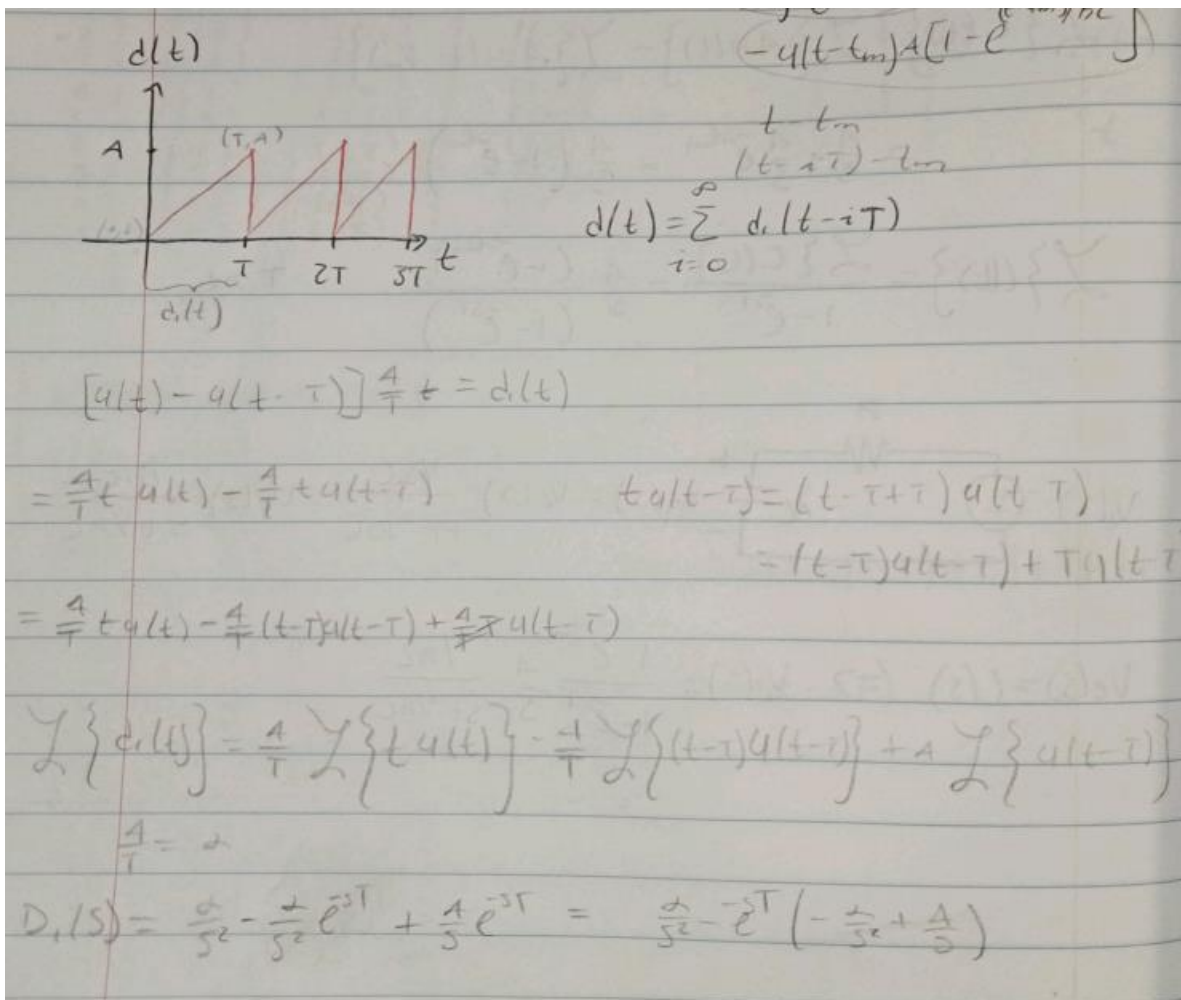 d(t)
-u(t-tₘ)A[1-e
A
(T,A)
t-tₘ
(t-iT)-tₘ
d(t) = ∑ d₁(t-iT)
∞
i=0
T 2T 3T t
d₁(t)
[u(t) - u(t-T)] A/T t = d₁(t)
= A/T t u(t) - A/T t u(t-T)
t u(t-T) = (t-T+T) u(t-T)
= (t-T)u(t-T) + T u(t-T
= A/T t u(t) - A/T (t-T)u(t-T) + A/T T u(t-T)
ℒ{d₁(t)} = A/T ℒ{t u(t)} - A/T ℒ{(t-T)u(t-T)} + A ℒ{u(t-T)}
A/T = α
D₁(S) = α/s² - α/s² e^-sT + A/s e^-sT = α/s² - e^-sT (-α/s² + A/s)